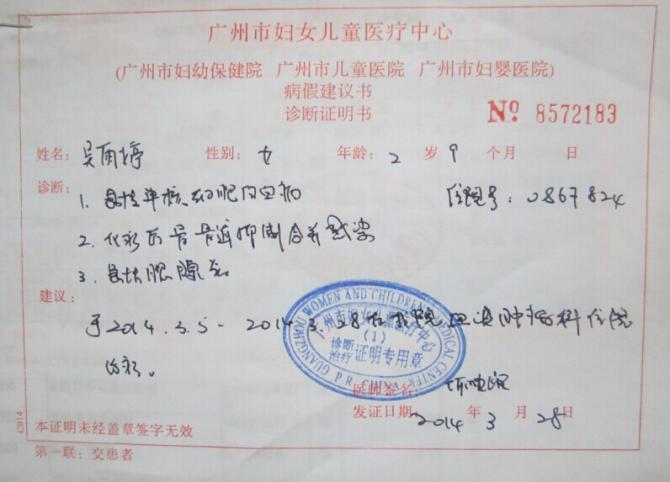 广州市妇女儿童医疗中心
(广州市妇幼保健院 广州市儿童医院 广州市妇婴医院)
病假建议书
诊断证明书
No 8572183
姓名: 吴雨婷 性别: 女 年龄: 2 岁 9 个月 日
诊断: 1. 急性单核细胞白血病 住院号: 0867824
2. 化疗后骨髓抑制合并感染
3. 急性腮腺炎
建议:
于2014.3.5-2014.3.28在我院血液肿瘤科住院
治疗。
GUANGZHOU WOMEN AND CHILDREN'S MEDICAL CENTER
广州市妇女儿童医疗中心
(1)
诊断 治疗 证明专用章
P R CHINA
医师签名:
发证日期 2014 年 3 月 28 日
本证明未经盖章签字无效
第一联: 交患者
C014